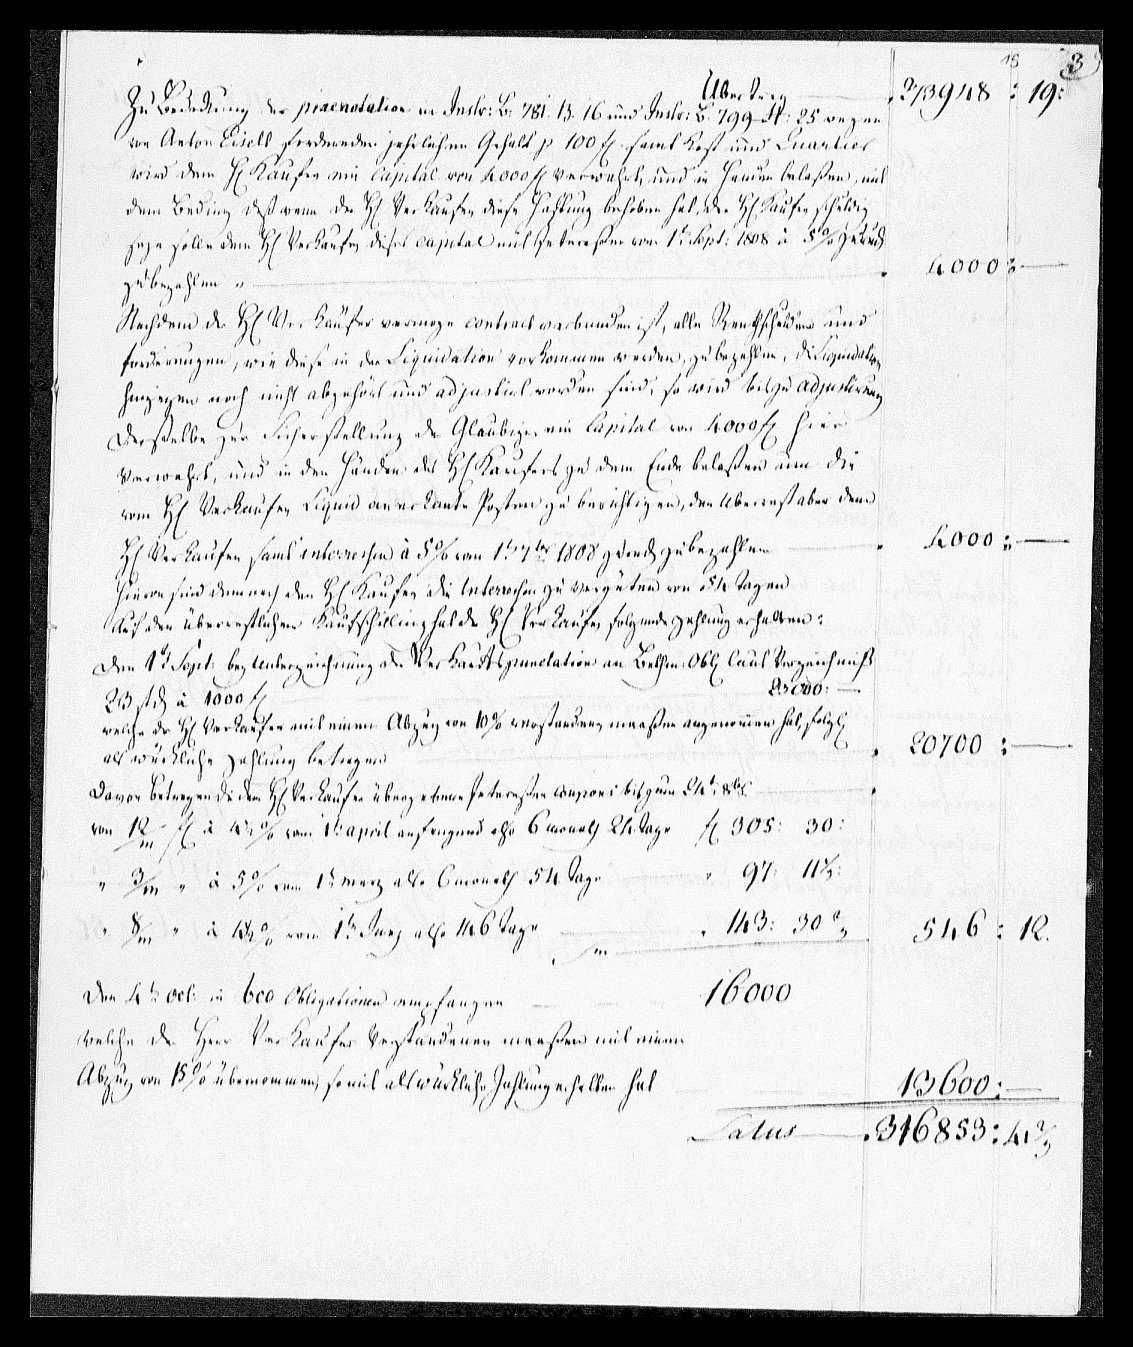 18 3
Übertrag 273948 : 19:
Zu Bedeckung der praenotation in Instr: B: 781. 13. 16 und Instr: B. 799 25 wegen
von Anton Eisell fordernden jährlichen Gehalt p 100 f. samt Kost und Quartier
wird dem H Kaufer ein Capital von 4000 f verwahrt, und in Handen belaßen, mit
dem Beding daß wenn der H Verkaufer diese Zahlung behoben hat, der H Kaufer schuldig
seyn solle dem H Verkaufer dieses Capital mit Interessen vom 1t Sept: 1808 à 5% zurück
zubezahlen " 4000 : —
Nachdem der H Verkaufer vermoge contract verbunden ist, alle schulden und
forderungen, wie diese in der Liquidation vorkommen werden, zu bezahlen, die Liquidation
hingegen noch nicht abgehört und adjustirt worden sind, so wird bis zu adjustirung
derselbe zur Sicherstellung der Glaubiger ein Capital von 4000 f hier
verwahrt, und in den Händen des H Kaufers zu dem Ende belaßen um die
vom H Verkaufer Liquid anerkante Posten zu berichtigen, den Uberrest aber dem
H Verkaufer samt interessen à 5% vom 1t 7ber 1808 zurück zubezahlen 4000 : —
Hievon sind demnach dem H Kaufer die Interessen zu verguten von 54 Tagen
Auf den überrestlichen Kaufschilling hat der H Verkaufer folgende Zahlung erhalten:
Den 1t Sept: bey Unterzeichnung der Verkaufspunctation an Bethm: Obl laut Verzeichniß
23 stck à 1000 f 23000: —
welche der H Verkaufer mit einem Abzug von 10% verstandener maaßen angenomen hat, folgl
als würkliche Zahlung betragen 20700 : —
Davon betragen die dem H Verkaufer übergebene Interessen coupons bis zum 24t 8br
von 12/m f à 4½% vom 1t april anfangend also 6 monath 24 Tage f 305: 30:
" 3/m " à 5% vom 1t Merz also 6 monath 54 Tage " 97: 11½:
" 8/m " à 4½% vom 1t Juny also 146 Tage 143: 30 546 : 12.
/m
Den 4t Oct: in bco Obligationen empfangen 16000
welche der Herr Verkaufer Verstandener maaßen mit einem
Abzug von 15% übernommen, somit als würkliche Zahlung erhalten hat 13600: —
Latus 316853: 4